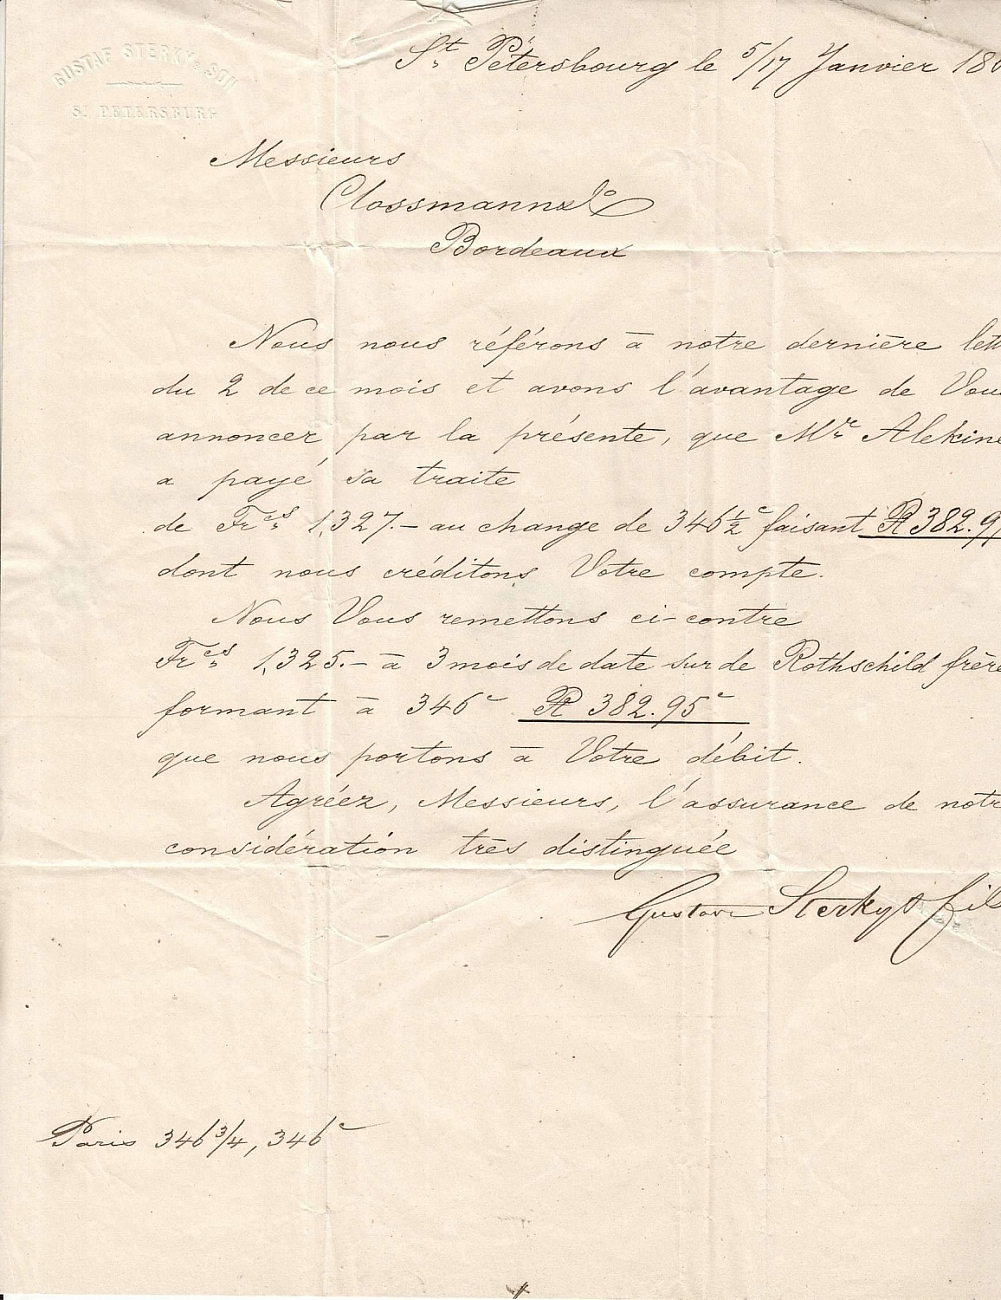 GUSTAF STERKY & SON
St. PETERSBURG
St. Pétersbourg le 5/17 Janvier 18
Messieurs
Clossmann & Co
Bordeaux
Nous nous référons à notre dernière lett
du 2 de ce mois et avons l'avantage de Vou
annoncer par la présente, que Mr. Alekine
a payé sa traite
de Frcs. 1,327.- au change de 346½ c faisant R 382.9
dont nous créditons Votre compte.
Nous Vous remettons ci-contre
Frcs. 1,325.- à 3 mois de date sur de Rothschild frère
formant à 346 c R 382.95 c
que nous portons à Votre débit.
Agréez, Messieurs, l'assurance de notr
considération très distinguée
Gustave Sterky & fil
Paris 346 3/4, 346 c